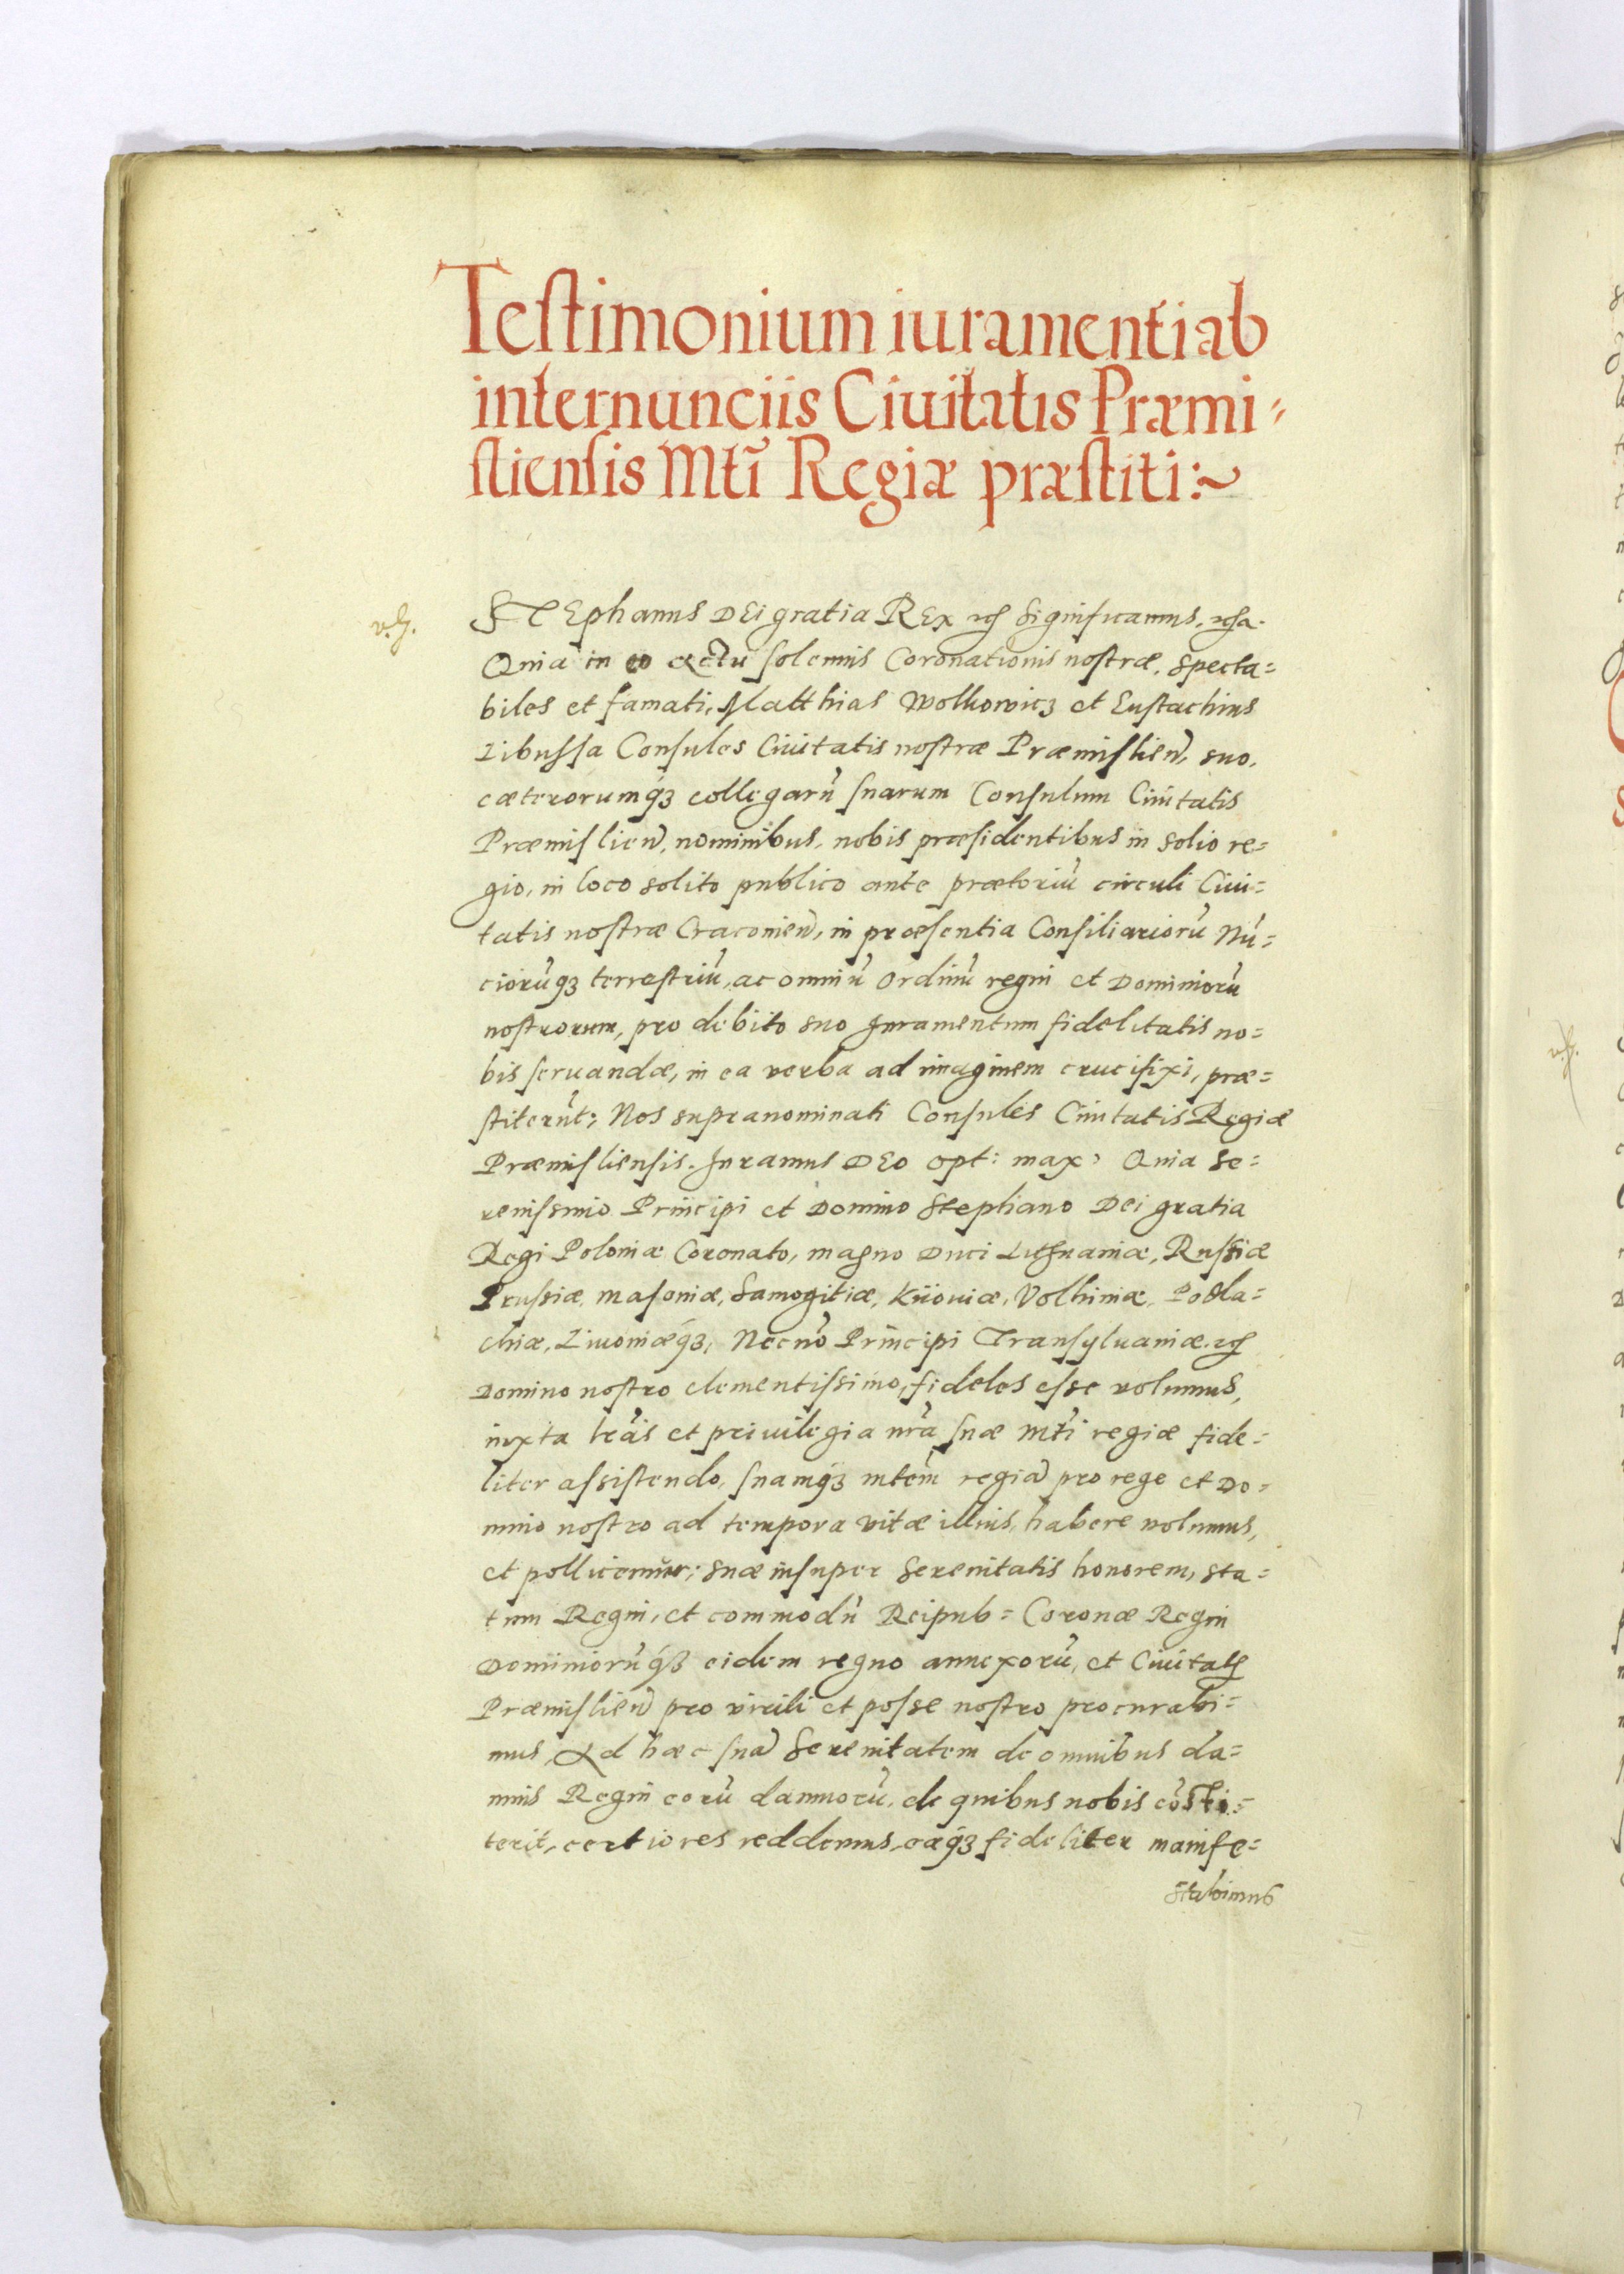 Testimonium iuramenti ab
internunciis Ciuitatis Præmi=
sliensis Mtĩ Regiæ præstiti:~
STEphanus DEi gratia REx etc Significamus, etca.
Quia in eo actu solennis Coronationis nostræ, specta=
biles et famati, Matthias Wolkowicz et Eustachius
Libussa Consules Ciuitatis nostræ Præmislien, suo,
cæterorumqз collegarũ suarum Consulum Ciuitatis
Præmislien, nominibus, nobis præsidentibus in solio re=
gio, in loco solito publico ante prætoriũ circuli Ciui=
tatis nostræ Cracouien, in præsentia Consiliariorũ Nũ=
ciorũqз terrestriũ, ac omniũ ordinũ regni et Dominiorũ
nostrorum, pro debito suo Juramentum fidelitatis no=
bis seruandæ, in ea verba ad imaginem crucifixi, præ=
stiterũt; Nos supranominati Consules Ciuitatis Regiæ
Præmisliensis. Juramus DEo opt: max: Quia se=
renissimo Principi et Domino Stephano Dei gratia
Regi Poloniæ Coronato, magno Duci Lithuaniæ, Russiæ
Prussiæ, masoniæ, Samogitiæ, Kiiouiæ, Volhiniæ, Podla=
chiæ, Liuoniæqз, Necnõ Principi Transyluaniæ. etc
Domino nostro clementissimo, fideles esse volumus,
iuxta lrãs et priuilegia nrã suæ Mtĩ regiæ fide=
liter assistendo, suamqз mtẽm regiã pro rege et Do=
mino nostro ad tempora vitæ illius, habere volumus,
et pollicemur; suæ insuper Serenitatis honorem, sta=
tum Regni, et commodũ Reipub= Coronæ Regni
Dominiorũqз eidem regno annexorũ, et Ciuitatis
Præmislien pro virili et posse nostro procurabi=
mus, Ad hæc suã Serenitatem de omnibus da=
mnis Regni eorũ damnorũ, de quibus nobis cõsti=
terit, certiores reddemus, eaqз fideliter manife=
stabimus